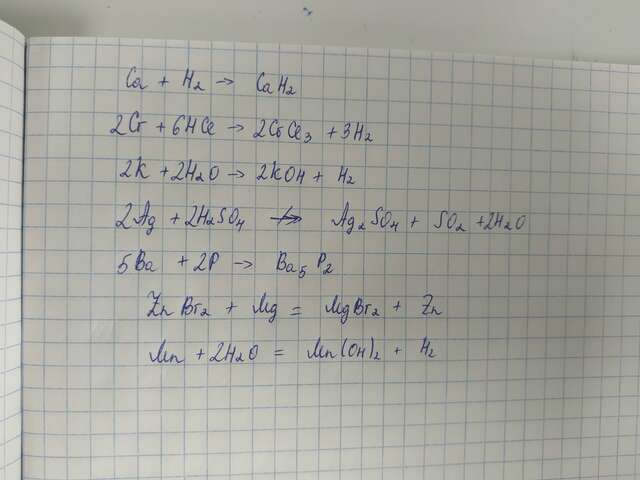 Ca + H₂ → CaH₂
2Cr + 6HCl → 2CrCl₃ + 3H₂
2K + 2H₂O → 2KOH + H₂
2Ag + 2H₂SO₄ ↛ Ag₂SO₄ + SO₂ + 2H₂O
5Ba + 2P → Ba₅P₂
ZnBr₂ + Mg = MgBr₂ + Zn
Mn + 2H₂O = Mn(OH)₂ + H₂